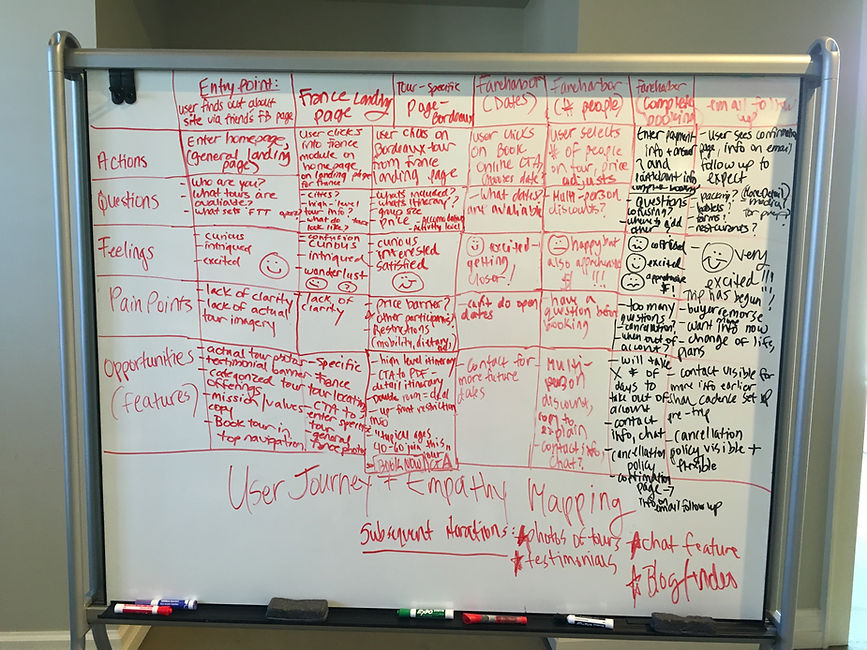 Entry point:
user finds out about
site via friends FB page
France Landing
page
Tour-Specific
Page-
Bordeaux
(Dates)
Fareharbor
(# people)
Fareharbor
Complete
booking
email follow
up
Actions
Enter homepage,
(general landing
page)
User clicks
into France
module on
homepage
on landing page
for France
user clicks on
Bordeaux tour
from France
landing page
user clicks
on Book
Online CTA,
chooses date
User selects
# of people
on tour, price
adjusts
Enter payment
info +
? and
participant info
complete booking
- User sees confirmation
page, info on email
follow up to
expect
Questions
- Who are you?
- What tours are
available?
- What sets FTT apart?
- cities?
- high-level
tour info?
- what do
look like?
- Whats included?
- Whats itinerary?
- group size
- price
- Activity level
- What dates?
are available
Multi-person
discounts?
- Questions
confusing?
- where to add
other
- packing?
tablets?
forms?
- restaurants?
(More Detail)
Feelings
- curious
- intriqued
- excited
- confusion
curious
intriqued
- wanderlust
- curious
interested
satisfied
excited-
getting
closer!
happy but
also apprehensive
$! !!!
confused
excited
apprehensive
$!
- Very
excited!!!
Trip has begun!
Pain Points
- lack of clarity
- lack of actual
tour imagery
lack of
clarity
- price barrier?
other participants,
Restrictions
(mobility, dietary,
- can't do open
dates
- have a
question before
booking
- too many
questions?
- cancellation
- when out of
account?
- buyer remorse
- want more info now
- change of life,
plans
Opportunities
(features)
- actual tour photos
- testimonial banner
- categorized tour
offerings
- mission/values
copy
- Book tour in
top navigation
- Specific
France
tour locations
- CTA to
enter specific
tour
- general
France photos
- high level itinerary
- CTA to PDF-
detail itinerary
- Double room-deal
- up-front restriction
info
- typical ages
40-60 join this
tour
BOOK NOW! CTA
- Contact for
more future
dates
- Multi-
person
discount,
copy to
explain
- contact info,
chat?
- will take
X # of
days to
take out of
account
- contact
info, chat
- cancellation
policy
- confirmation
page →
info on
email follow up
- contact visible for
more info earlier
than cadence set up
pre-trip
- cancellation
policy visible +
flexible
User Journey + Empathy Mapping
Subsequent iterations:
★ photos of tours
★ testimonials
★ chat feature
★ Blog/index
EXPO